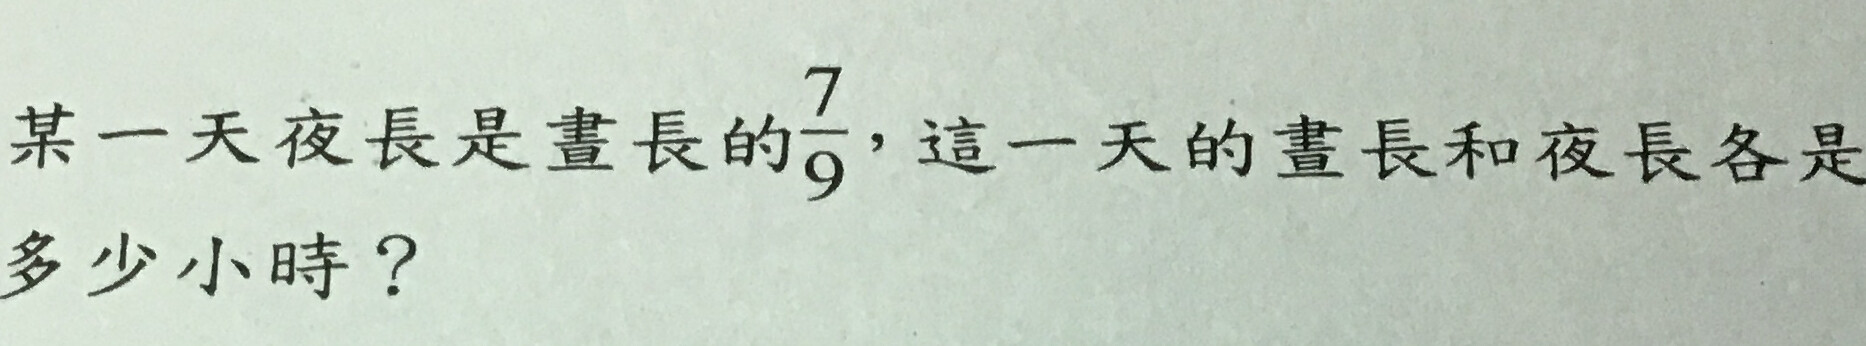 某一天夜長是晝長的7/9，這一天的晝長和夜長各是
多少小時？